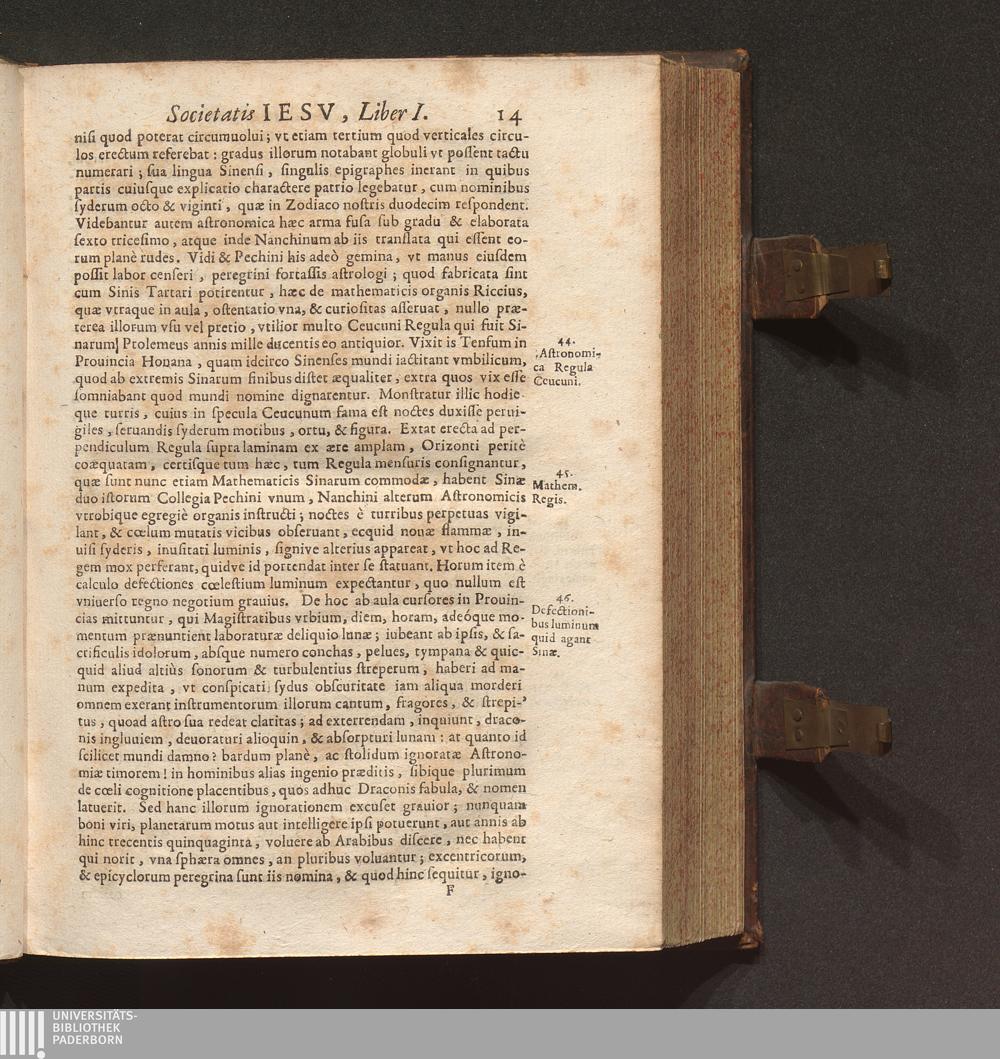 Societatis IESV, Liber I. 14
nisi quod poterat circumuolui; vt etiam tertium quod verticales circu-
los erectum referebat: gradus illorum notabant globuli vt possent tactu
numerari; sua lingua Sinensi, singulis epigraphes inerant in quibus
partis cuiusque explicatio charactere patrio legebatur, cum nominibus
syderum octo & viginti, quæ in Zodiaco nostris duodecim respondent.
Videbantur autem astronomica hæc arma fusa sub gradu & elaborata
sexto tricesimo, atque inde Nanchinum ab iis translata qui essent eo-
rum planè rudes. Vidi & Pechini his adeò gemina, vt manus eiusdem
possit labor censeri, peregrini fortassis astrologi; quod fabricata sint
cum Sinis Tartari potirentur, hæc de mathematicis organis Riccius,
quæ vtraque in aula, ostentatio vna, & curiositas asseruat, nullo præ-
terea illorum vsu vel pretio, vtilior multo Ceucuni Regula qui fuit Si-
narum Ptolemeus annis mille ducentis eo antiquior. Vixit is Tenfum in
Prouincia Honana, quam idcirco Sinenses mundi iactitant vmbilicum,
quod ab extremis Sinarum finibus distet æqualiter, extra quos vix esse
somniabant quod mundi nomine dignarentur. Monstratur illic hodie-
que turris, cuius in specula Ceucunum fama est noctes duxisse perui-
giles, seruandis syderum motibus, ortu, & figura. Extat erecta ad per-
pendiculum Regula supra laminam ex ære amplam, Orizonti peritè
coæquatam, certisque tum hæc, tum Regula mensuris consignantur,
quæ sunt nunc etiam Mathematicis Sinarum commodæ, habent Sinæ
duo istorum Collegia Pechini vnum, Nanchini alterum Astronomicis
vtrobique egregiè organis instructi; noctes è turribus perpetuas vigi-
lant, & cœlum mutatis vicibus obseruant, ecquid nouæ flammæ, in-
uisi syderis, inusitati luminis, signive alterius appareat, vt hoc ad Re-
gem mox perferant, quidve id portendat inter se statuant. Horum item è
calculo defectiones cœlestium luminum expectantur, quo nullum est
vniuerso regno negotium grauius. De hoc ab aula cursores in Prouin-
cias mittuntur, qui Magistratibus vrbium, diem, horam, adeóque mo-
mentum prænuntient laboraturæ deliquio lunæ; iubeant ab ipsis, & sa-
crificulis idolorum, absque numero conchas, pelues, tympana & quic-
quid aliud altiùs sonorum & turbulentius streperum, haberi ad ma-
num expedita, vt conspicati sydus obscuritate iam aliqua morderi
omnem exerant instrumentorum illorum cantum, fragores, & strepi-
tus, quoad astro sua redeat claritas; ad exterrendam, inquiunt, draco-
nis ingluuiem, deuoraturi alioquin, & absorpturi lunam: at quanto id
scilicet mundi damno? bardum planè, ac stolidum ignoratæ Astrono-
miæ timorem! in hominibus alias ingenio præditis, sibique plurimum
de cœli cognitione placentibus, quos adhuc Draconis fabula, & nomen
latuerit. Sed hanc illorum ignorationem excuset grauior; nunquam
boni viri, planetarum motus aut intelligere ipsi potuerunt, aut annis ab
hinc trecentis quinquaginta, voluere ab Arabibus discere, nec habent
qui norit, vna sphæra omnes, an pluribus voluantur; excentricorum,
& epicyclorum peregrina sunt iis nomina, & quod hinc sequitur, igno-
F
44.
Astronomi-
ca Regula
Ceucuni.
45.
Mathem.
Regis.
46.
Defectioni-
bus luminum
quid agant
Sinæ.
UNIVERSITÄTS-
BIBLIOTHEK
PADERBORN